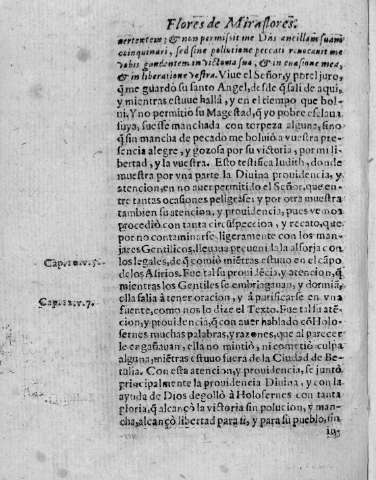 Flores de Miraflores.
uertentem; & non permisit me Dñs ancillam suam
coinquinari, sed sine pollutione peccati reuocauit me
vobis gaudentem in victoria sua, & in euasione mea,
& in liberatione vestra. Viue el Señor, y por el juro,
que me guardò su santo Angel, desde q̃ sali de aqui,
y mientras estuue hallà, y en el tiempo que bol-
ui, Y no permitio su Magestad, q̃ yo pobre esclaua
suya, fuesse manchada con torpeza alguna, sino
q̃ sin mancha de pecado me boluiò a vuestra pre-
sencia alegre, y gozosa por su victoria, por mi li-
bertad, y la vuestra. Esto testifica Iudith, donde
muestra por vna parte la Diuina prouidencia, y
atencion, en no auer permitido el Señor, que en-
tre tantas ocasiones peligrase; y por otra muestra
tambien su atencion, y prouidencia, pues vemos
procediò con tanta circunspeccion, y recato, que
por no contaminarse, ligeramente con los man-
jares Gentilicos, lleuaua preuenida la alforja con
los legales, de q̃ comiò miẽtras estuuo en el cãpo
Cap. 10. v. 5.
de los Asirios. Fue tal su prouidẽcia, y atencion, q̃
mientras los Gentiles se embriagauan, y dormiã,
ella salia à tener oracion, y à purificarse en vna
Cap. 12. v. 7.
fuente, como nos lo dize el Texto. Fue tal su atẽ-
cion, y prouidencia, q̃ con auer hablado cõ Holo-
fernes muchas palabras, y razones, que al parecer
le engañauan, ella no mintiò, ni cometiò culpa
alguna, miẽtras estuuo fuera de la Ciudad de Be-
tulia. Con esta atencion, y prouidencia, se juntò
principalmente la prouidencia Diuina, y con la
ayuda de Dios degollò à Holofernes con tanta
gloria, q̃ alcançò la victoria sin polucion, y man-
cha, alcançò libertad para si, y para su pueblo, sin